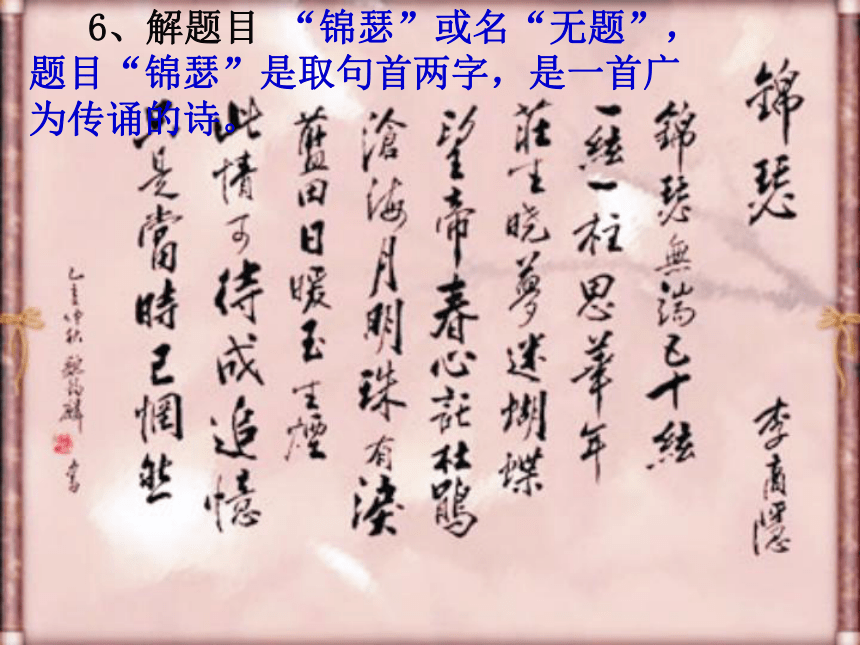 6、解题目 “锦瑟”或名“无题”，
题目“锦瑟”是取句首两字，是一首广
为传诵的诗。
錦瑟
李商隱
錦瑟無端五十絃
一絃一柱思華年
莊生曉夢迷蝴蝶
望帝春心託杜鵑
滄海月明珠有淚
藍田日暖玉生煙
此情可待成追憶
只是當時已惘然
乙亥仲秋
書